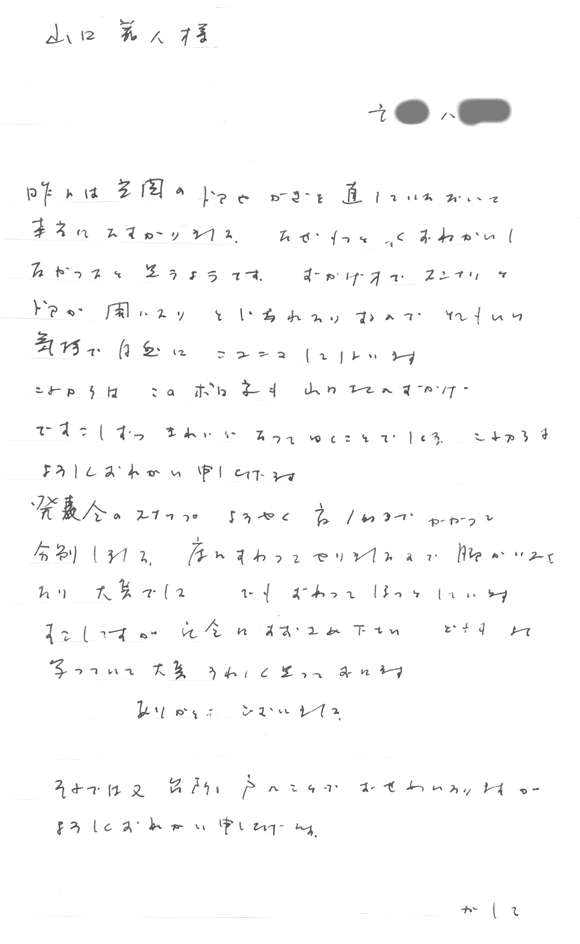 山口 義人様
昨日は玄関のドアやかぎを直していただいて
本当にたすかりました。なぜもっと早くおねがいし
なかったかと思うようです。おかげ様でスンナリと
ドアが開いたり とじられたりするので とてもいい
気持で自然にニコニコしてしまいます
これからは このボロ家も山口さんのおかげ
ですこしずつきれいになってゆくことでしょう。これからも
よろしくおねがい申し上げます
発表会のスナップ ようやく 迄かかって
分別しました。床にすわってやりましたので 脚がいたく
なり 大変でした でも おわってほっとしています
すこしですが 記念にお納め下さい
写っていて大変うれしく思っております
ありがとうございました。
それでは又 台所の戸のことでおせわになりますが
よろしくおねがい申し上げます。
かしこ